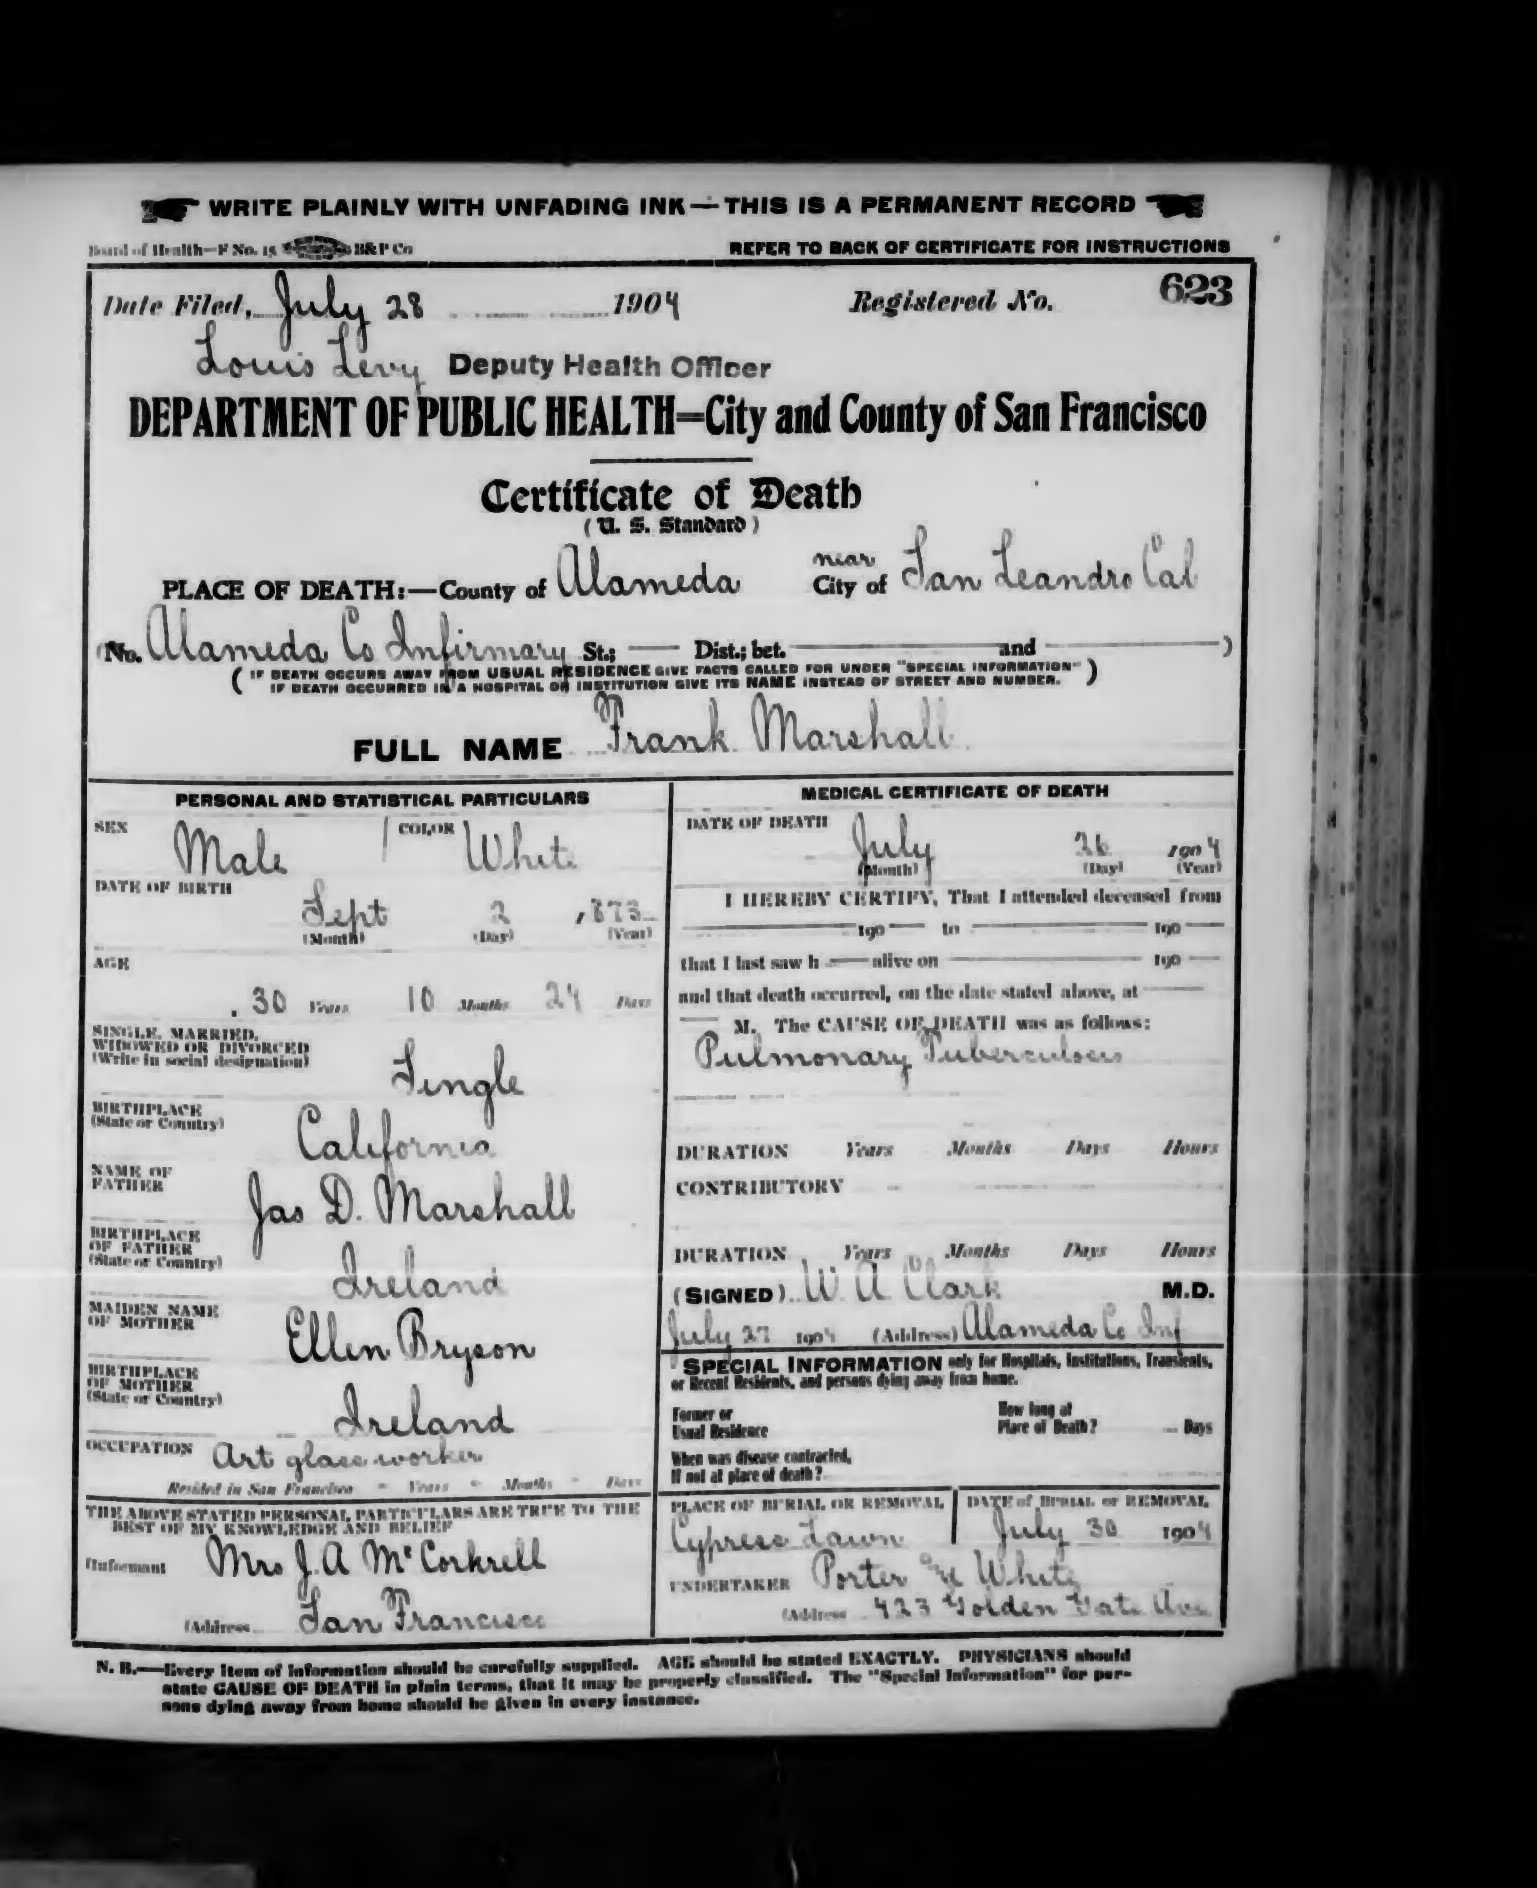 WRITE PLAINLY WITH UNFADING INK — THIS IS A PERMANENT RECORD
Board of Health—F No. 15 B&P Co REFER TO BACK OF CERTIFICATE FOR INSTRUCTIONS
Date Filed, July 28 1904 Registered No. 623
Louis Levy Deputy Health Officer
DEPARTMENT OF PUBLIC HEALTH=City and County of San Francisco
Certificate of Death
(U. S. Standard)
near
PLACE OF DEATH:—County of Alameda City of San Leandro Cal
(No. Alameda Co Infirmary St.; — Dist.; bet. — and — )
( IF DEATH OCCURS AWAY FROM USUAL RESIDENCE GIVE FACTS CALLED FOR UNDER "SPECIAL INFORMATION" )
IF DEATH OCCURRED IN A HOSPITAL OR INSTITUTION GIVE ITS NAME INSTEAD OF STREET AND NUMBER.
FULL NAME Frank Marshall
PERSONAL AND STATISTICAL PARTICULARS
SEX Male COLOR White
DATE OF BIRTH
Sept 2 1873
(Month) (Day) (Year)
AGE
30 Years 10 Months 24 Days
SINGLE, MARRIED,
WIDOWED OR DIVORCED
(Write in social designation)
Single
BIRTHPLACE
(State or Country)
California
NAME OF
FATHER
Jas D. Marshall
BIRTHPLACE
OF FATHER
(State or Country)
Ireland
MAIDEN NAME
OF MOTHER
Ellen Bryson
BIRTHPLACE
OF MOTHER
(State or Country)
Ireland
OCCUPATION Art glass worker
Resided in San Francisco - Years - Months - Days
THE ABOVE STATED PERSONAL PARTICULARS ARE TRUE TO THE
BEST OF MY KNOWLEDGE AND BELIEF
(Informant Mrs J. A McCorkrell
(Address San Francisco
MEDICAL CERTIFICATE OF DEATH
DATE OF DEATH
July 26 1904
(Month) (Day) (Year)
I HEREBY CERTIFY, That I attended deceased from
— 190 — to — 190 —
that I last saw h — alive on — 190 —
and that death occurred, on the date stated above, at —
— M. The CAUSE OF DEATH was as follows:
Pulmonary Tuberculosis
DURATION Years Months Days Hours
CONTRIBUTORY
DURATION Years Months Days Hours
(SIGNED) W. A Clark M.D.
July 27 1904 (Address) Alameda Co Inf
SPECIAL INFORMATION only for Hospitals, Institutions, Transients,
or Recent Residents, and persons dying away from home.
Former or
Usual Residence
How long at
Place of Death? Days
When was disease contracted,
If not at place of death?
PLACE OF BURIAL OR REMOVAL
Cypress Lawn
DATE of BURIAL or REMOVAL
July 30 1904
UNDERTAKER Porter & White
(Address 423 Golden Gate Ave
N. B.—Every item of information should be carefully supplied. AGE should be stated EXACTLY. PHYSICIANS should
state CAUSE OF DEATH in plain terms, that it may be properly classified. The "Special Information" for per-
sons dying away from home should be given in every instance.